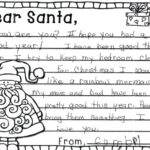 ear Santa,
ow are you? I hope you had a
ood year! I have been good th
I try to keep my bedroom clea
For Christmas I wa
like a rainbow mermai
my mom and Dad have been
pretty good this year.
bring them something. I
love you.
From,